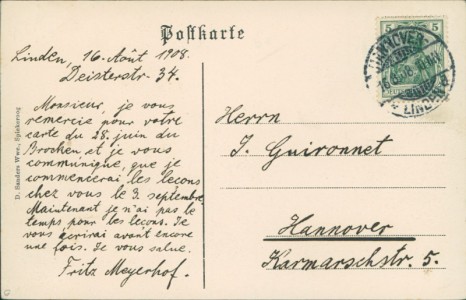 Postkarte
Linden, 16. Août 1908.
Deisterstr. 34.
Monsieur, je vous
remercie pour votre
carte du 28. juin du
Brocken et je vous
communique, que je
commencerai les leçons
chez vous le 3. septembre.
Maintenant je n'ai pas le
temps pour les leçons. Je
vous écrirai avant encore
une fois. Je vous salue.
Fritz Meyerhof.
D. Sanders Wwe., Spiekeroog
5 5
HANNOVER
LINDEN
Herrn
J. Guironnet
Hannover
Karmarschstr. 5.